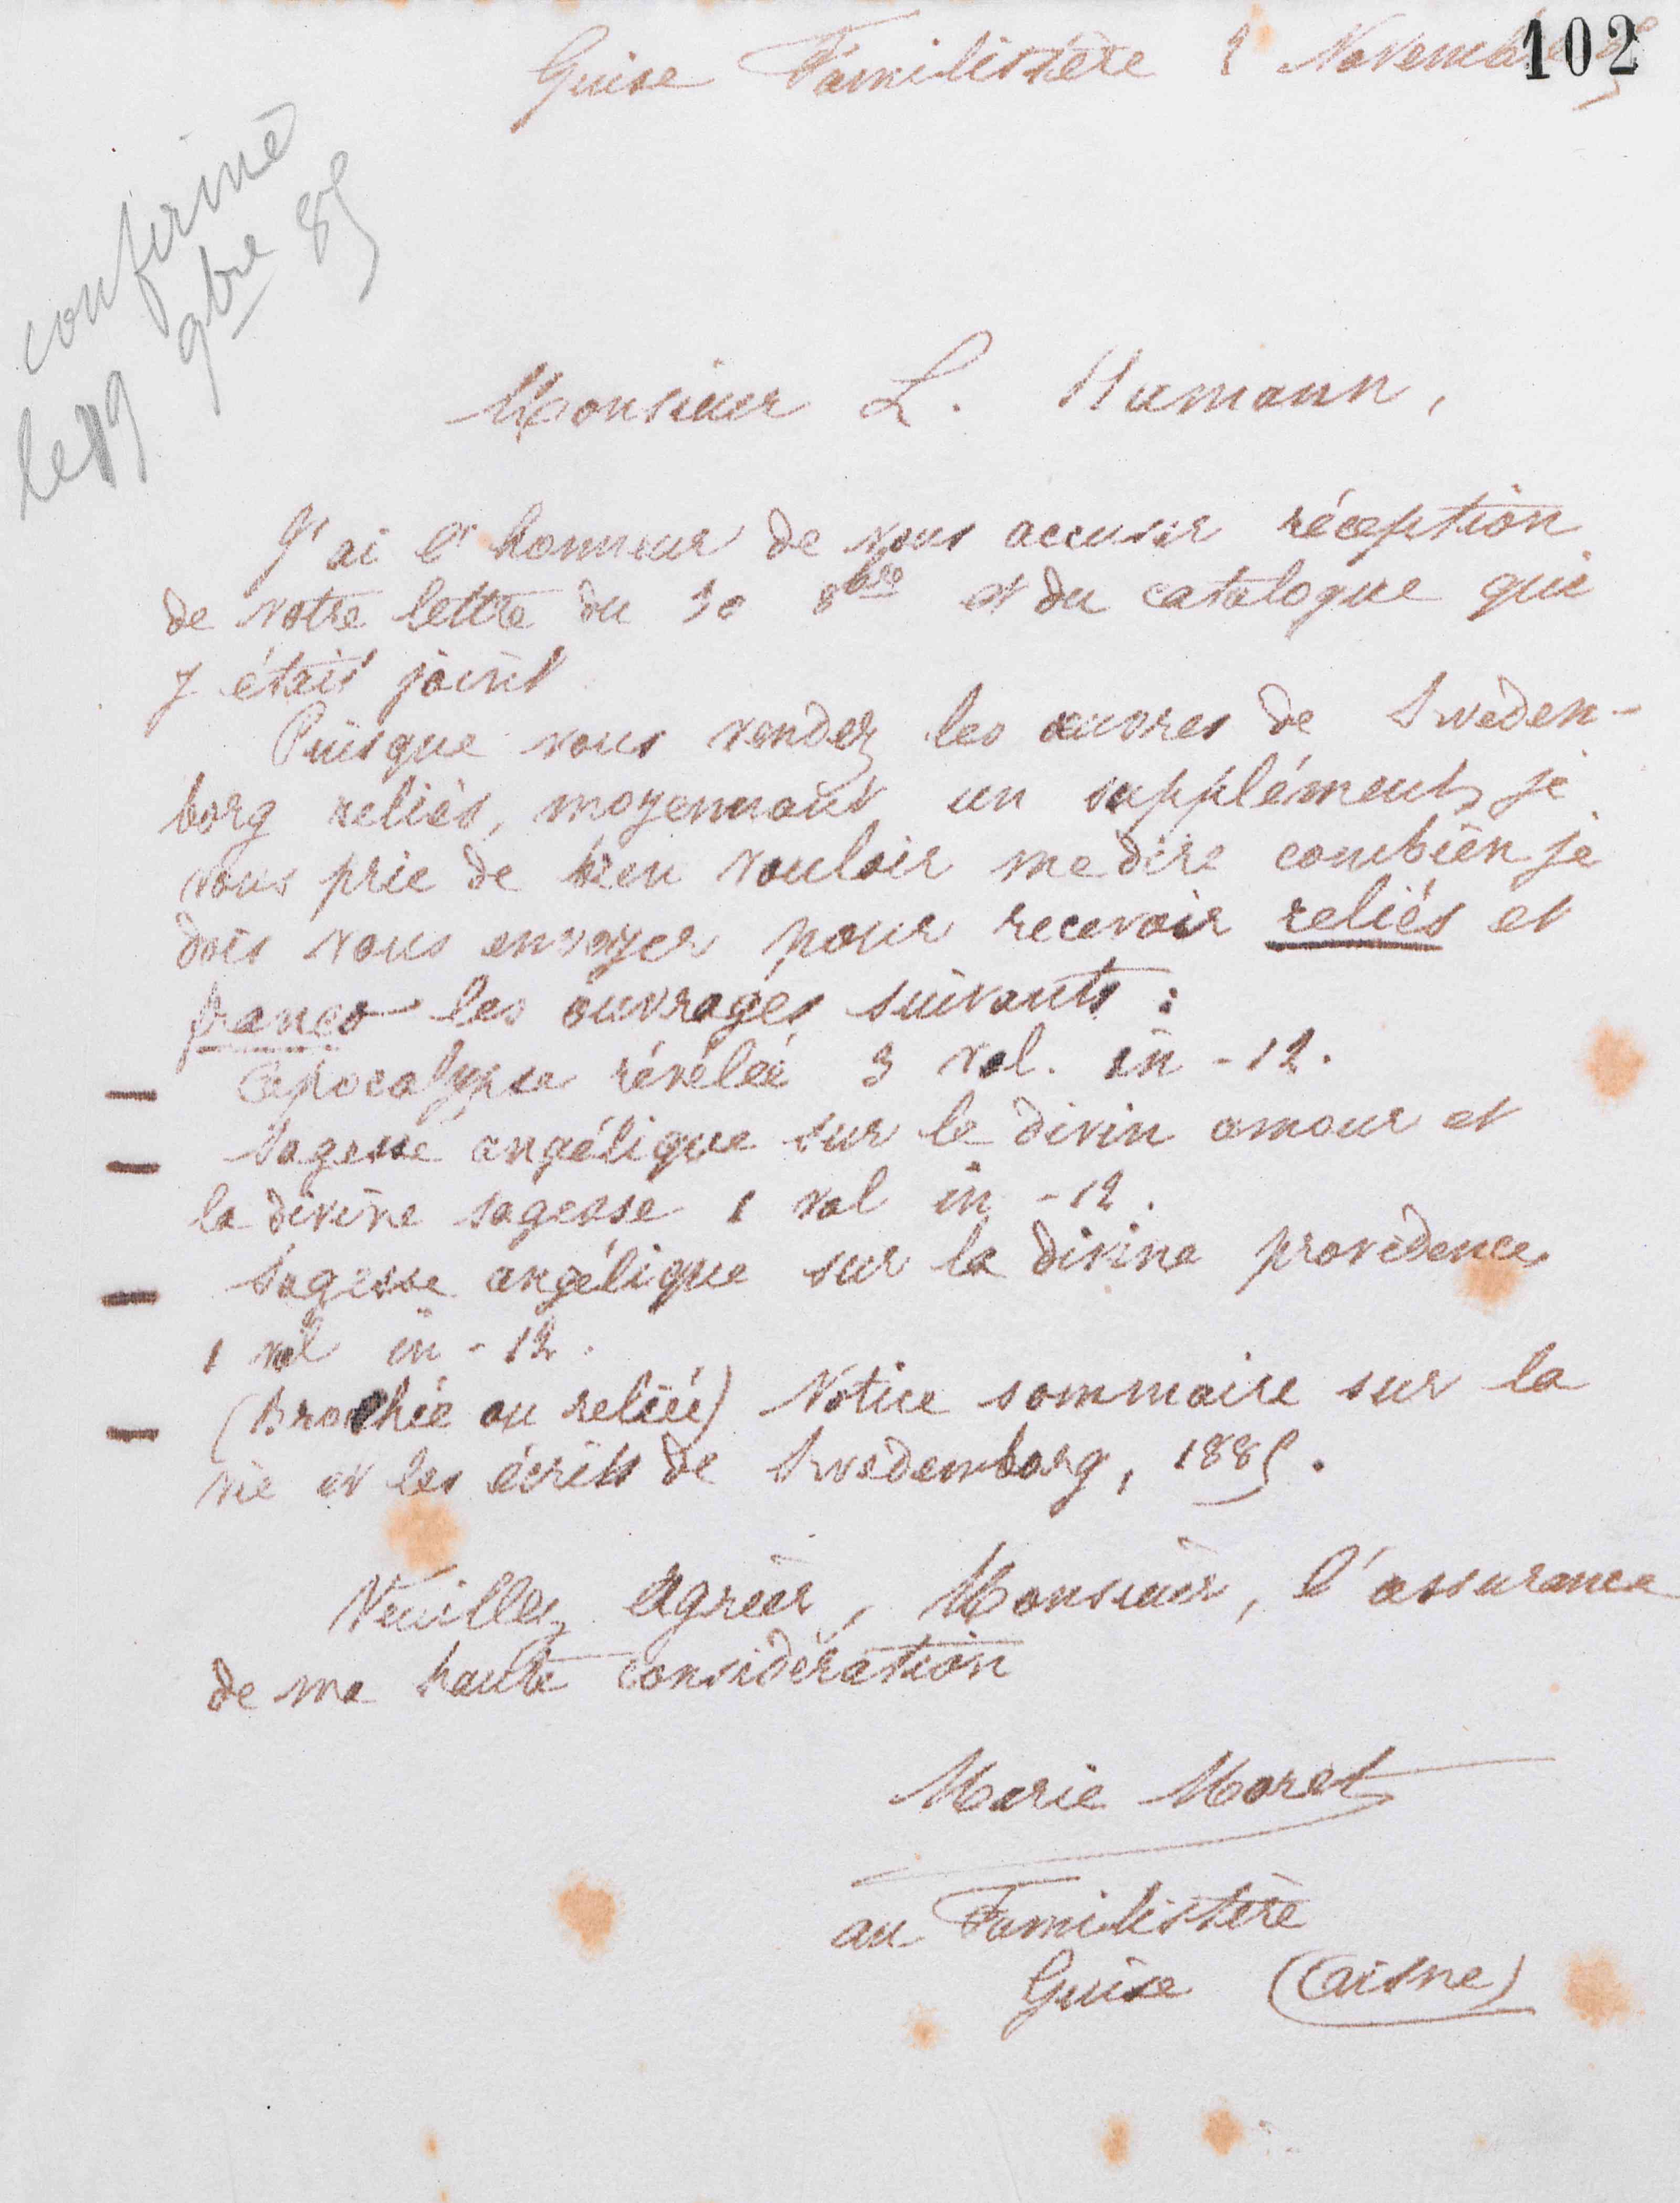 102
Guise Familistère 2 Novembre 85
confirmé
le 19 9bre 85
Monsieur L. Humann,
J'ai l'honneur de vous accuser réception
de votre lettre du 30 8bre et du catalogue qui
y était joint
Puisque vous vendez les œuvres de Sweden-
borg reliés, moyennant un supplément, je
vous prie de bien vouloir me dire combien je
dois vous envoyer pour recevoir reliés et
franco les ouvrages suivants :
— Apocalypse révélée 3 vol. in - 12.
— Sagesse angélique sur le divin amour et
la divine sagesse 1 vol in - 12.
— Sagesse angélique sur la divine providence
1 vol in - 12.
— (Brochée ou reliée) Notice sommaire sur la
vie et les écrits de Swedemborg, 1885.
Veuillez agréer, Monsieur, l'assurance
de ma haute considération
Marie Moret
au Familistère
Guise (Aisne)